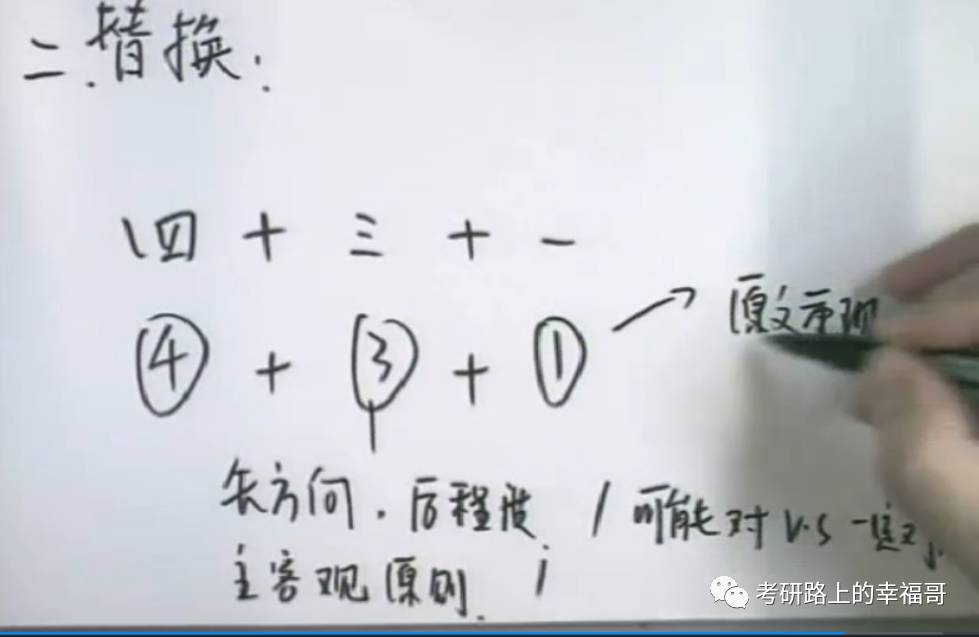 二.替换:
四 + 三 + 一
④ + ③ + ① → 原文重现
先方向.后程度 / 可能对 v.s 一定对
主客观原则.
考研路上的幸福哥